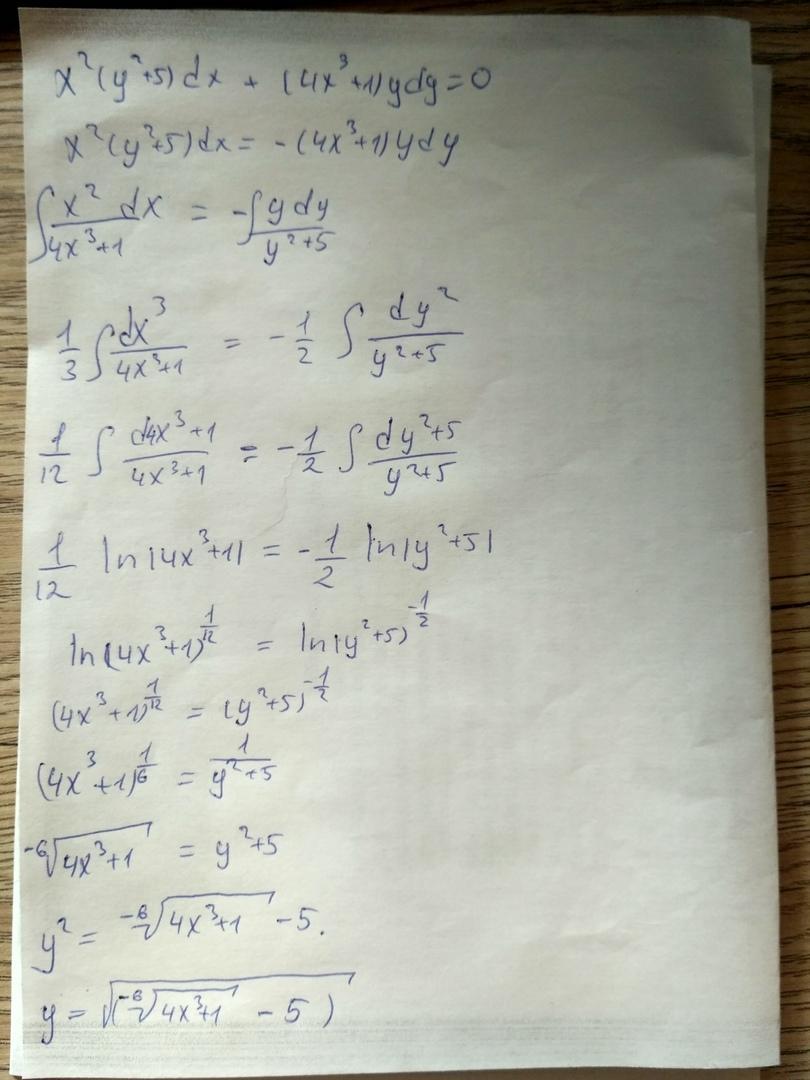 x²(y²+5)dx + (4x³+1)ydy=0
x²(y²+5)dx = -(4x³+1)ydy
∫ x² dx / 4x³+1 = -∫ y dy / y²+5
1/3 ∫ dx³ / 4x³+1 = -1/2 ∫ dy² / y²+5
1/12 ∫ d4x³+1 / 4x³+1 = -1/2 ∫ dy²+5 / y²+5
1/12 ln|4x³+1| = -1/2 ln|y²+5|
ln(4x³+1)^1/12 = ln(y²+5)^-1/2
(4x³+1)^1/12 = (y²+5)^-1/2
(4x³+1)^1/6 = 1 / y²+5
-6√4x³+1 = y²+5
y² = -6√4x³+1 - 5.
y = √(-6√4x³+1 - 5)